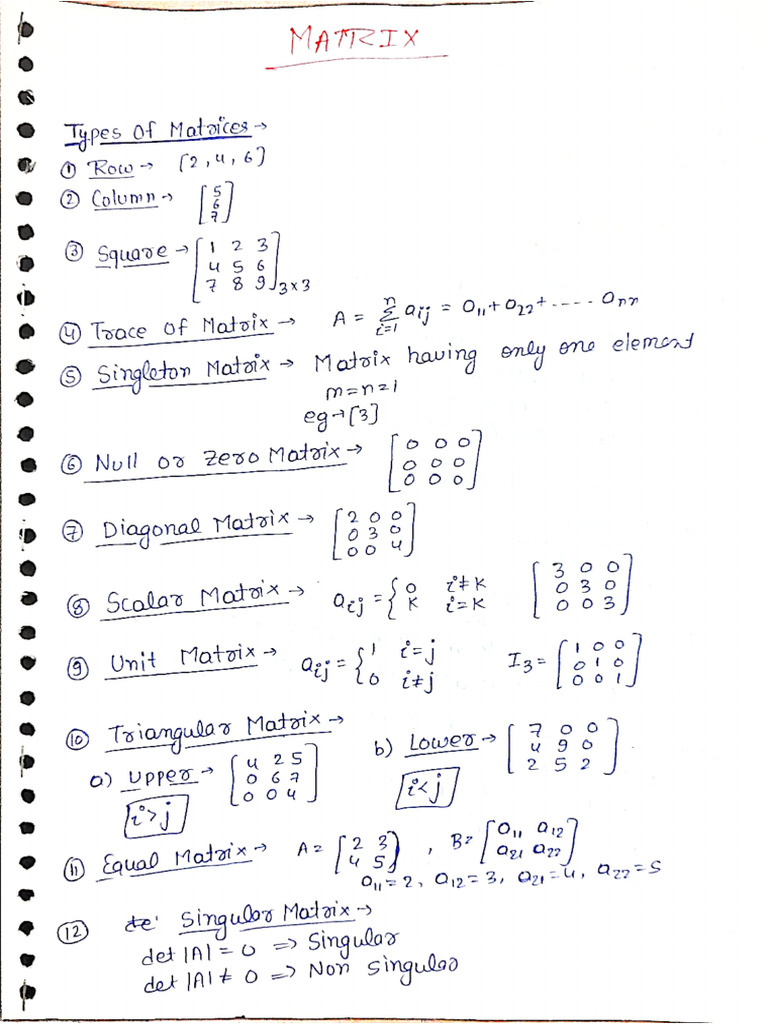 MATRIX
Types Of Matrices →
① Row → [2, 4, 6]
② Column → [5 6 7]
③ Square → [1 2 3
4 5 6
7 8 9] 3×3
④ Trace Of Matrix → A = n Σ i=1 aij = a11 + a22 + ..... ann
⑤ Singleton Matrix → Matrix having only one element
m = n = 1
eg → [3]
⑥ Null or Zero Matrix → [0 0 0
0 0 0
0 0 0]
⑦ Diagonal Matrix → [2 0 0
0 3 0
0 0 4]
⑧ Scalar Matrix → aij = { 0 i≠K
K i=K
[3 0 0
0 3 0
0 0 3]
⑨ Unit Matrix → aij = { 1 i=j
0 i≠j
I3 = [1 0 0
0 1 0
0 0 1]
⑩ Triangular Matrix →
a) Upper → [4 2 5
0 6 7
0 0 4]
i>j
b) Lower → [7 0 0
4 9 0
2 5 2]
i<j
⑪ Equal Matrix → A = [2 3
4 5] , B = [a11 a12
a21 a22]
a11=2, a12=3, a21=4, a22=5
⑫ Singular Matrix →
det |A| = 0 => Singular
det |A| ≠ 0 => Non Singular